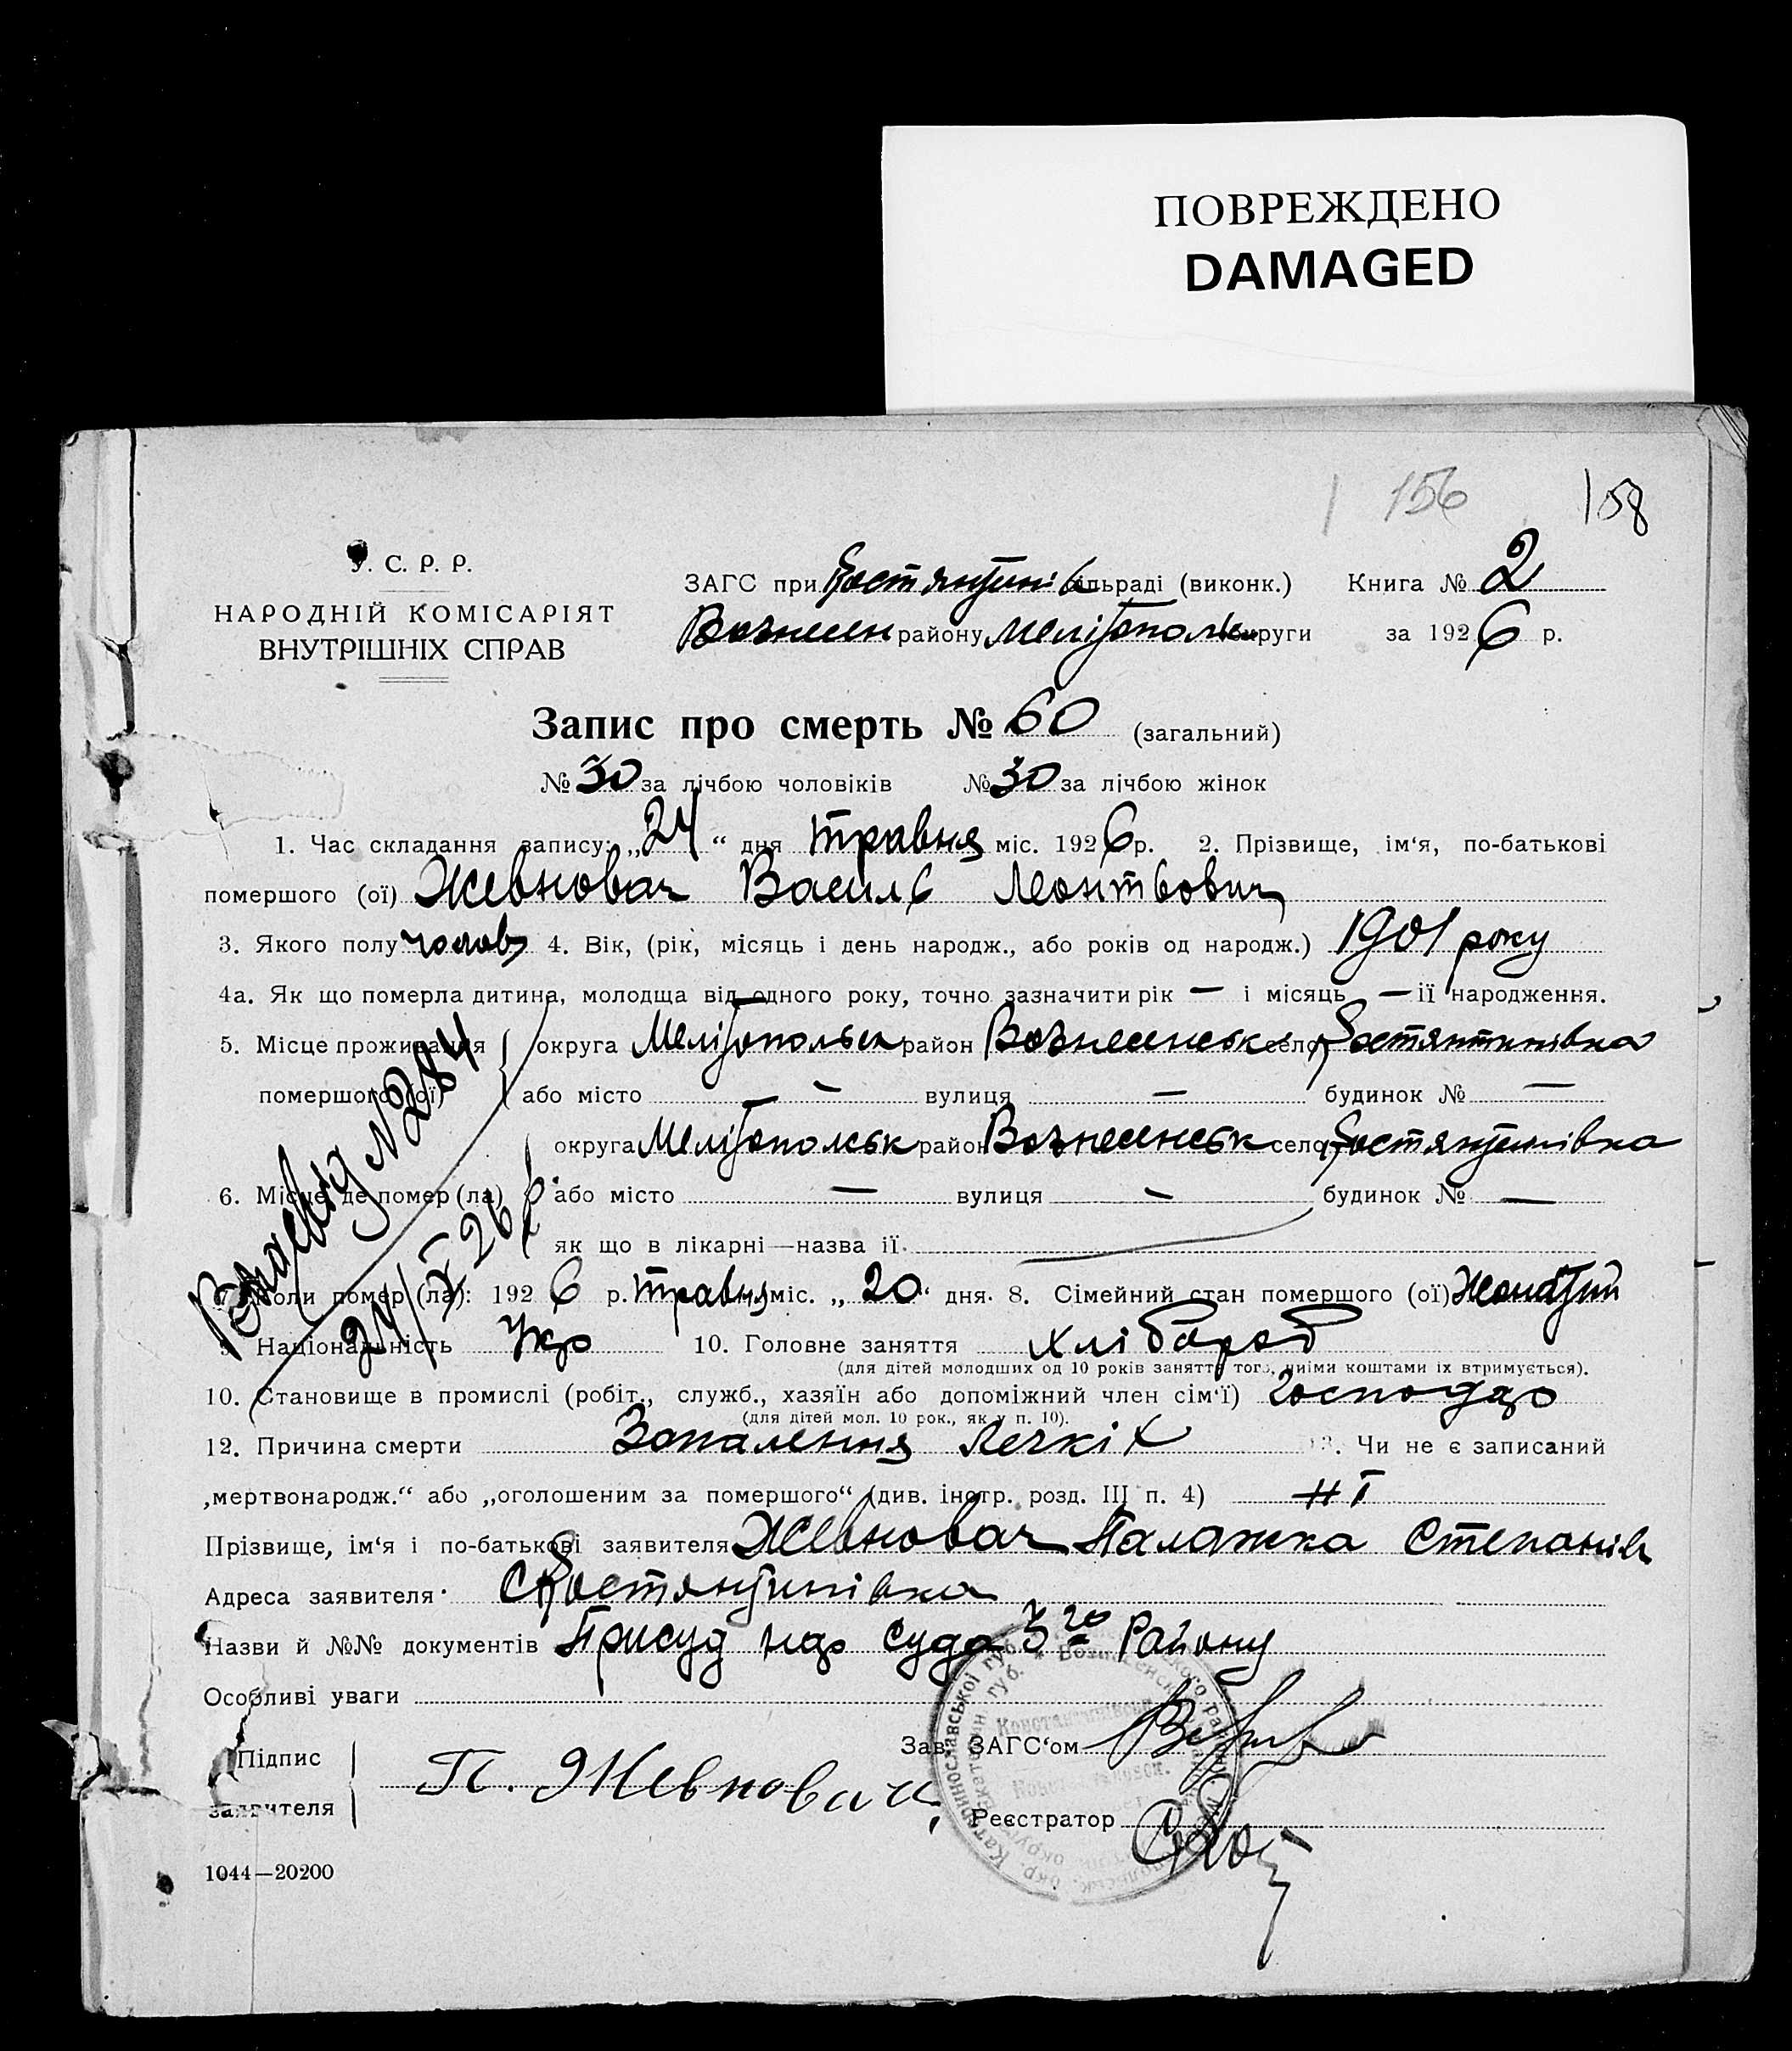 ПОВРЕЖДЕНО
DAMAGED
156 158
У. С. Р. Р.
НАРОДНІЙ КОМІСАРІЯТ
ВНУТРІШНІХ СПРАВ
ЗАГС при Костянтинів сільраді (виконк.) Книга № 2
Вознесен району Мелітополь округи за 1926 р.
Запис про смерть № 60 (загальний)
№ 30 за лічбою чоловіків № 30 за лічбою жінок
1. Час складання запису: „24“ дня травня міс. 1926 р. 2. Прізвище, ім‘я, по-батькові
помершого (ої) Жевновач Василь Леонтьович
3. Якого полу чолов 4. Вік, (рік, місяць і день народж., або років од народж.) 1901 року
4а. Як що померла дитина, молодща від одного року, точно зазначити рік — і місяць — ії народження.
5. Місце проживання помершого (ої) округа Мелітопольск район Вознесенськ село Костянтинівка
або місто — вулиця — будинок № —
6. Місце де помер (ла) округа Мелітопольск район Вознесенськ село Костянтинівка
або місто — вулиця — будинок № —
як що в лікарні—назва ії
7. Коли помер (ла): 1926 р. травня міс. „20“ дня. 8. Сімейний стан помершого (ої) Жонатий
9. Національність Укр 10. Головне заняття хлібороб
(для дітей молодших од 10 років заняття того, чиіми коштами іх втримується).
10. Становище в промислі (робіт., служб., хазяїн або допоміжний член сім‘ї) Господар
(для дітей мол. 10 рок., як у п. 10).
12. Причина смерти Запалення Легкіх 13. Чи не є записаний
„мертвонародж.“ або „оголошеним за помершого“ (див. інстр. розд. III п. 4) ні
Прізвище, ім‘я і по-батькові заявителя Жевновач Палажка Степанів
Адреса заявителя С Костянтинівка
Назви й №№ документів Присуд нар суда 3го Району
Особливі уваги
№ 284
24/V 26 р.
Підпис
заявителя
П. Жевновач
Зав. ЗАГС‘ом
Реєстратор
1044—20200